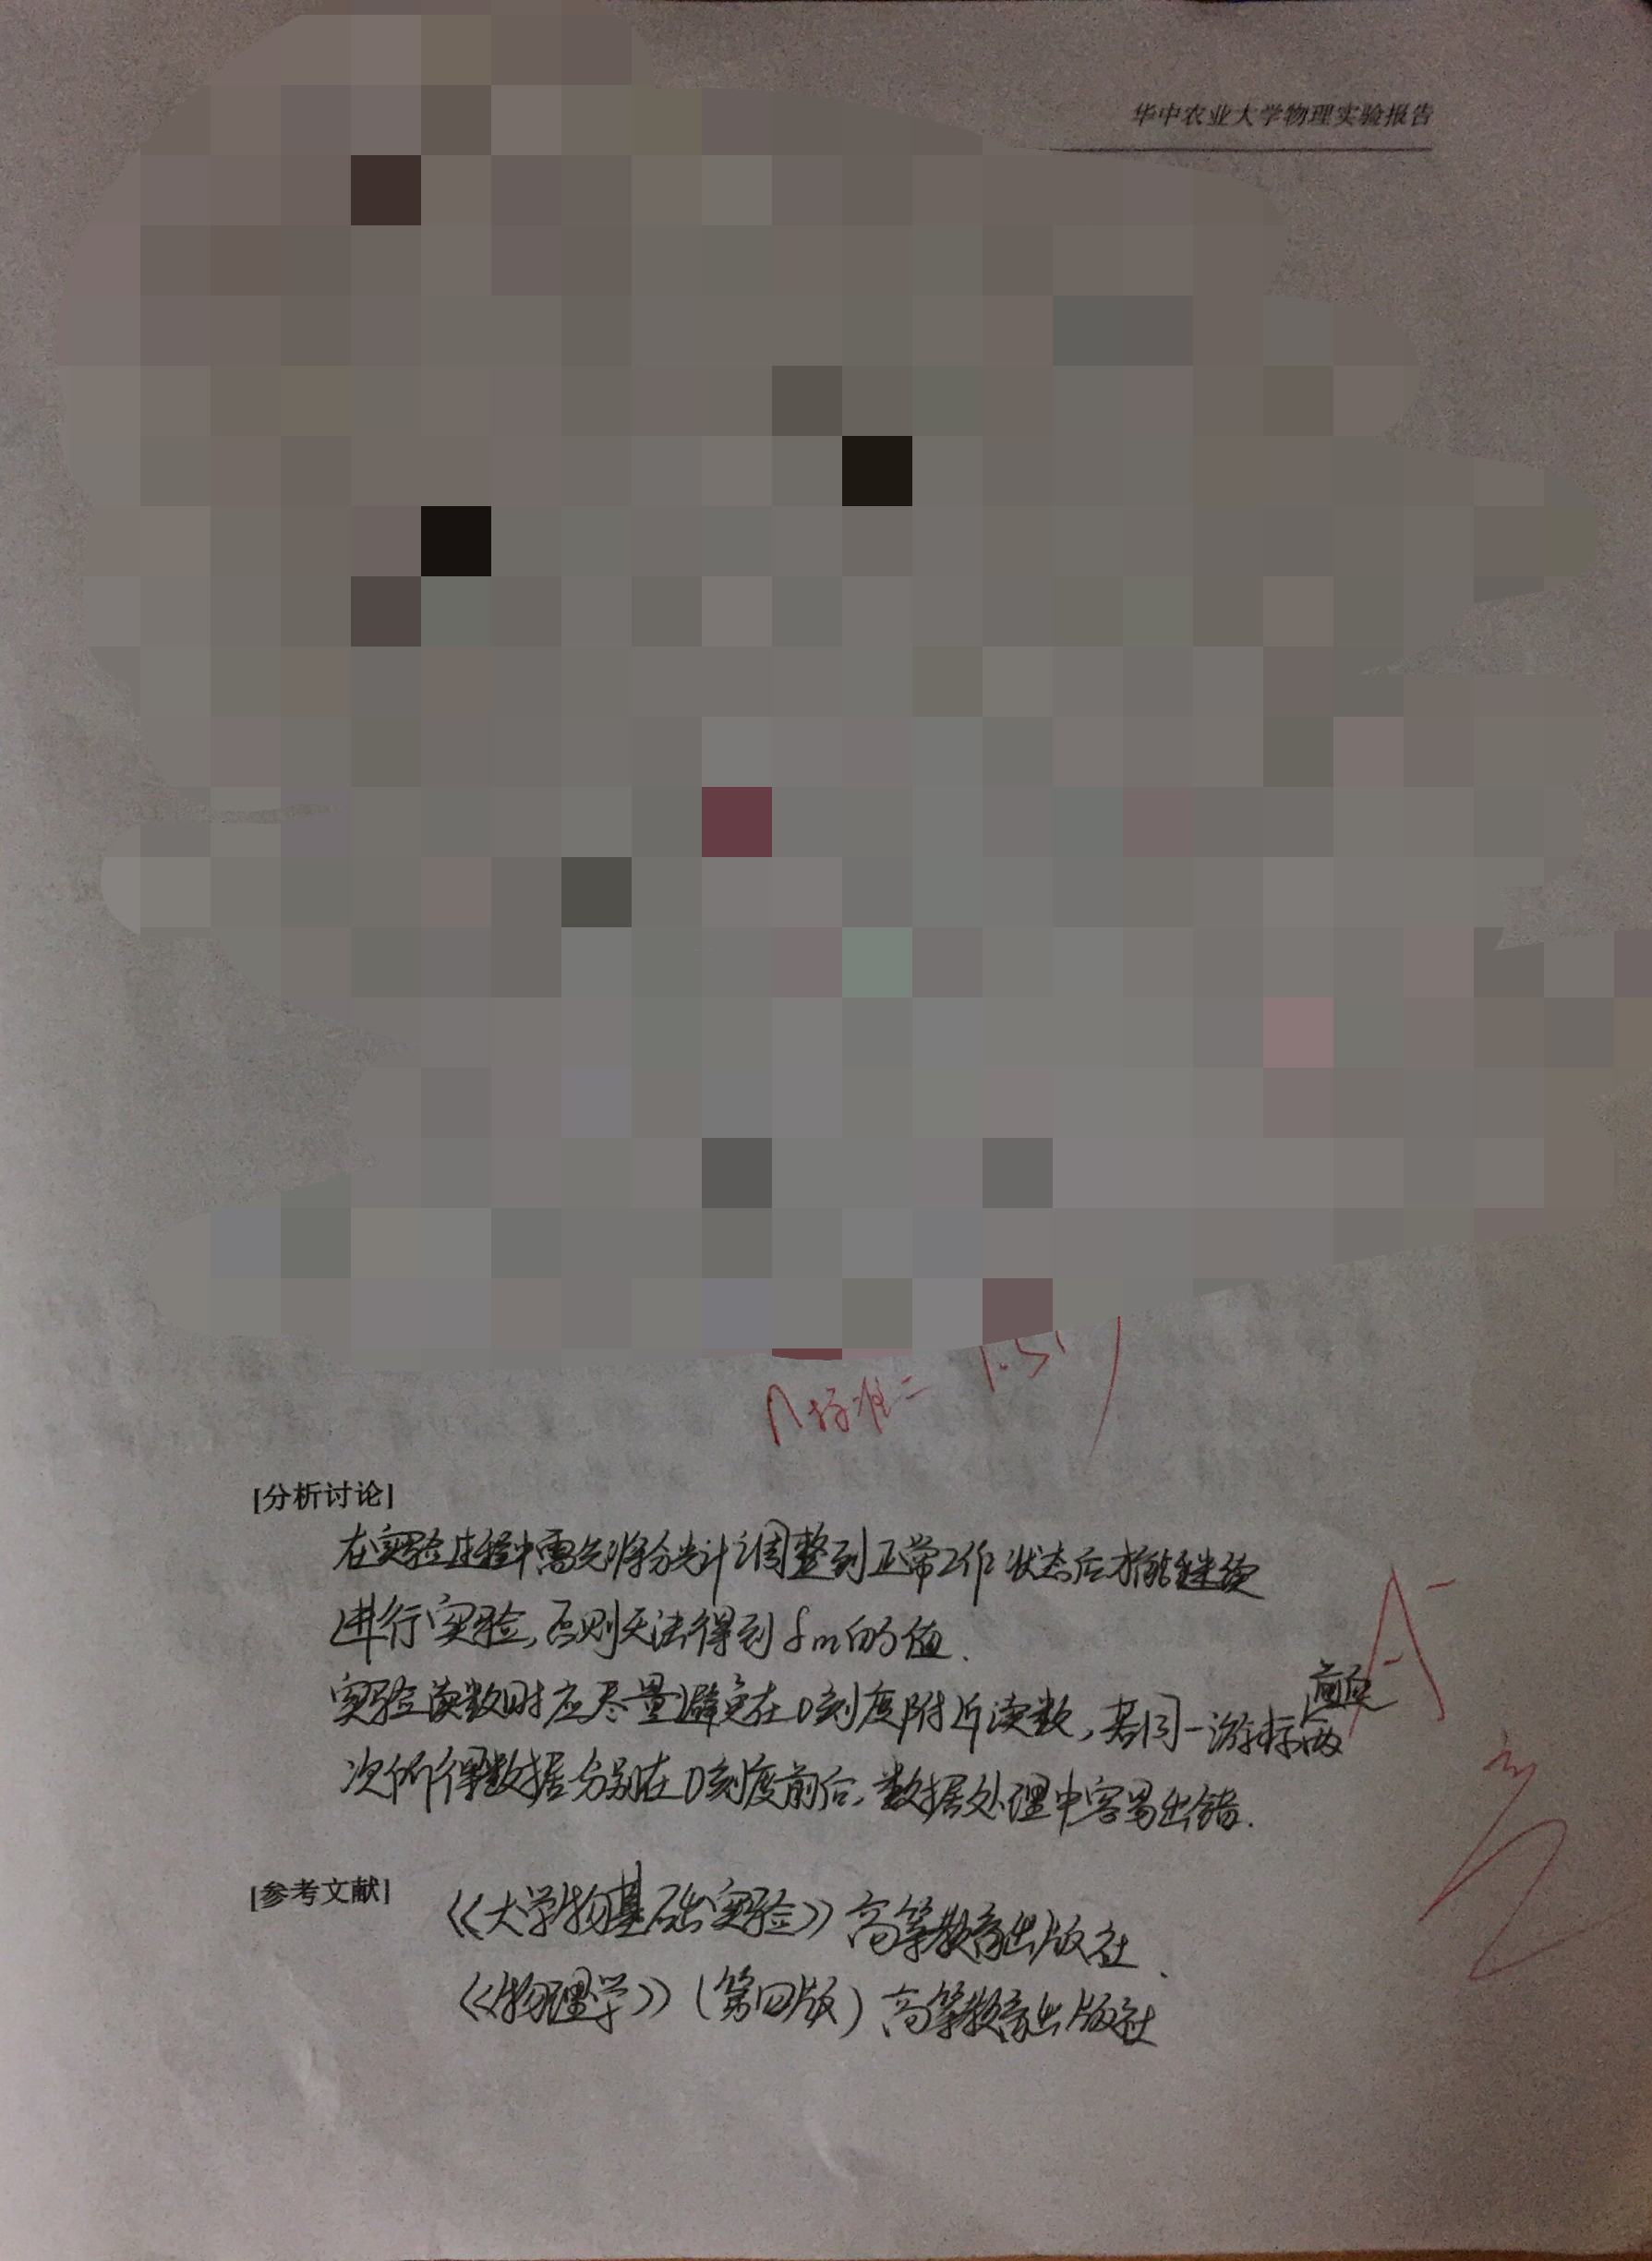 华中农业大学物理实验报告
n标准=1.51
[分析讨论]
在实验过程中需先将分光计调整到正常工作状态后才能继续
进行实验,否则无法得到δm的值.
前后
实验读数时应尽量避免在0刻度附近读数,若同一游标两
次所得数据分别在0刻度前后,数据处理中容易出错.
A-
[参考文献] 《大学物基础实验》高等教育出版社.
《物理学》(第四版)高等教育出版社